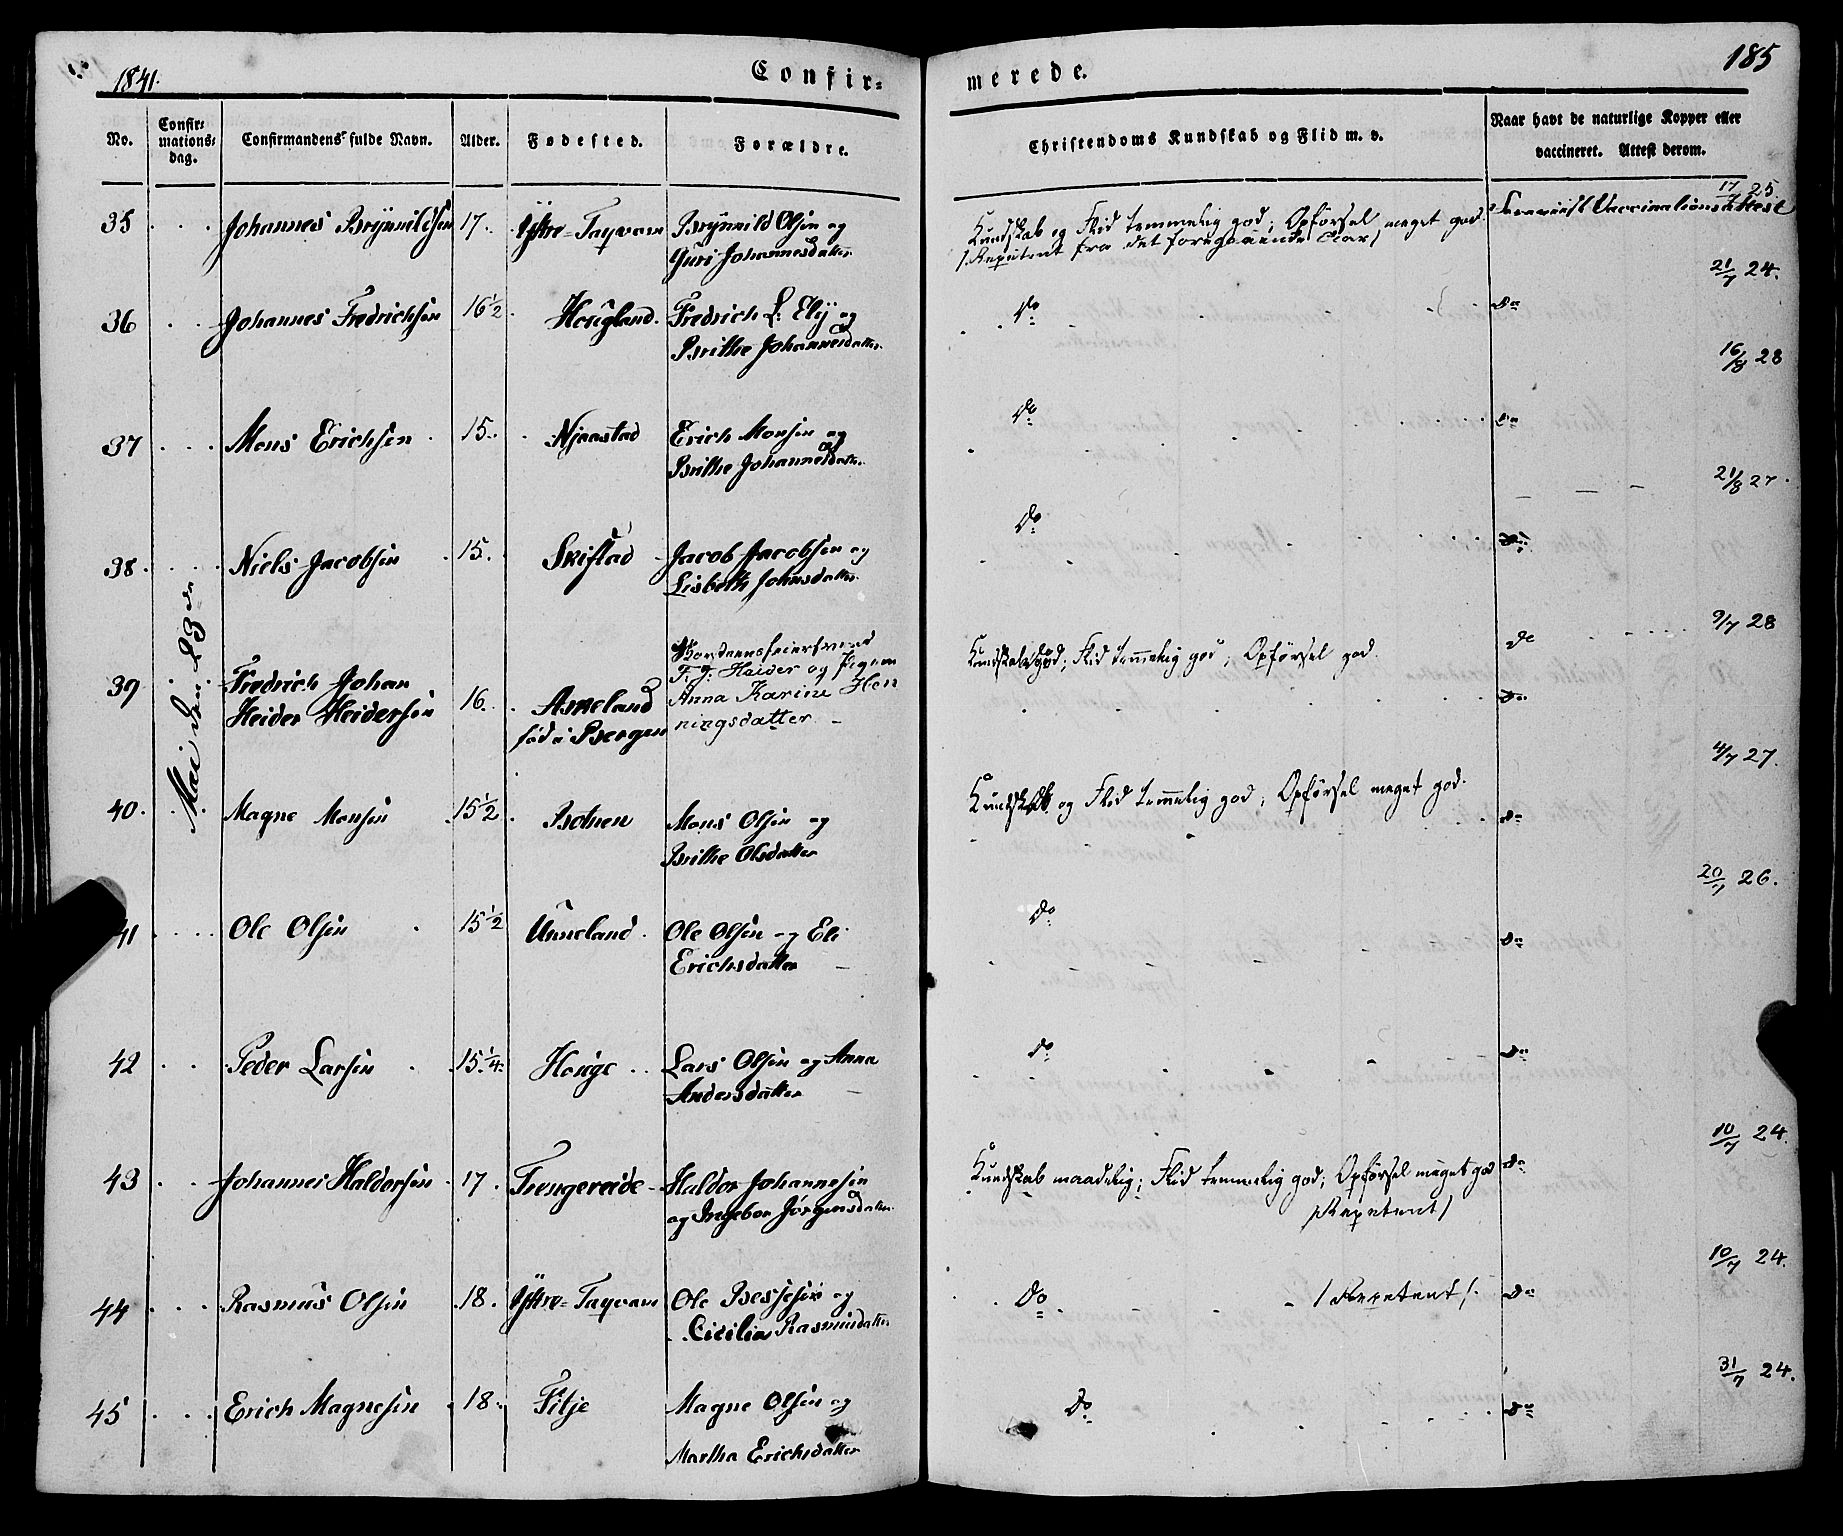 1841.
Confir=
merede.
185
No.
Confir=
mations=
dag.
Confirmandens fulde Navn.
Alder.
Fødested.
Forældre.
Christendoms Kundskab og Flid m. v.
Naar havt de naturlige Kopper eller
vaccineret. Attest derom.
Mai den 23de
35 Johannes Brynnildsen 17. Ystre=Tagvam Brynnild Olsen og
Guri Johannesdatter
Kundskab og Flid temmelig god; Opførsel meget god.
/:Repetent fra det foregaaende Aar/
Vaccinations Attest 17/7 25
36 Johannes Fredrichsen 16 1/2 Hougland. Fredrich L: Elij og
Brithe Johannesdatter.
Do Do 21/7 24.
37 Mons Erichsen 15. Njaastad Erich Monsen og
Brithe Johannesdatter
Do Do 16/8 28
38. Niels Jacobsen 15. Skiftad Jacob Jacobsen og
Lisbeth Johnsdatter
Do Do 21/8 27.
39 Fredrich Johan
Heider Heidersen 16. Arneland
fød i Bergen
F. J: Heider og Pigen
Anna Karine Hen
ningsdatter
Kundskab god; Flid temmelig god; Opførsel god. Do 9/7 28
Do
40. Magne Monsen 15 1/2 Botnen Mons Olsen og
Brithe Olsdatter
Kundskab og Flid temmelig god; Opførsel meget god. Do 4/7 27.
41 Ole Olsen 15 1/2 Unneland. Ole Olsen og Eli
Erichsdatter
Do Do 20/7 26.
42 Peder Larsen 15 1/4. Houge Lars Olsen og Anna
Andersdatter
Do Do
43 Johannes Haldorsen 17. Trengereide Haldor Johannesen
og Ingebor Jørgensdatter
Kundskab maadelig; Flid temmelig god; Opførsel meget god Do 10/7 24.
/:Repetent/
44 Rasmus Olsen 18. Ystre=Tagvam Ole Bessesen og
Cicilia Rasmusdatter
Do /Repetent/. Do 10/7 24.
45 Erich Magnesen 18. Fitje Magne Olsen og
Martha Erichsdatter
Do Do 31/7 24.